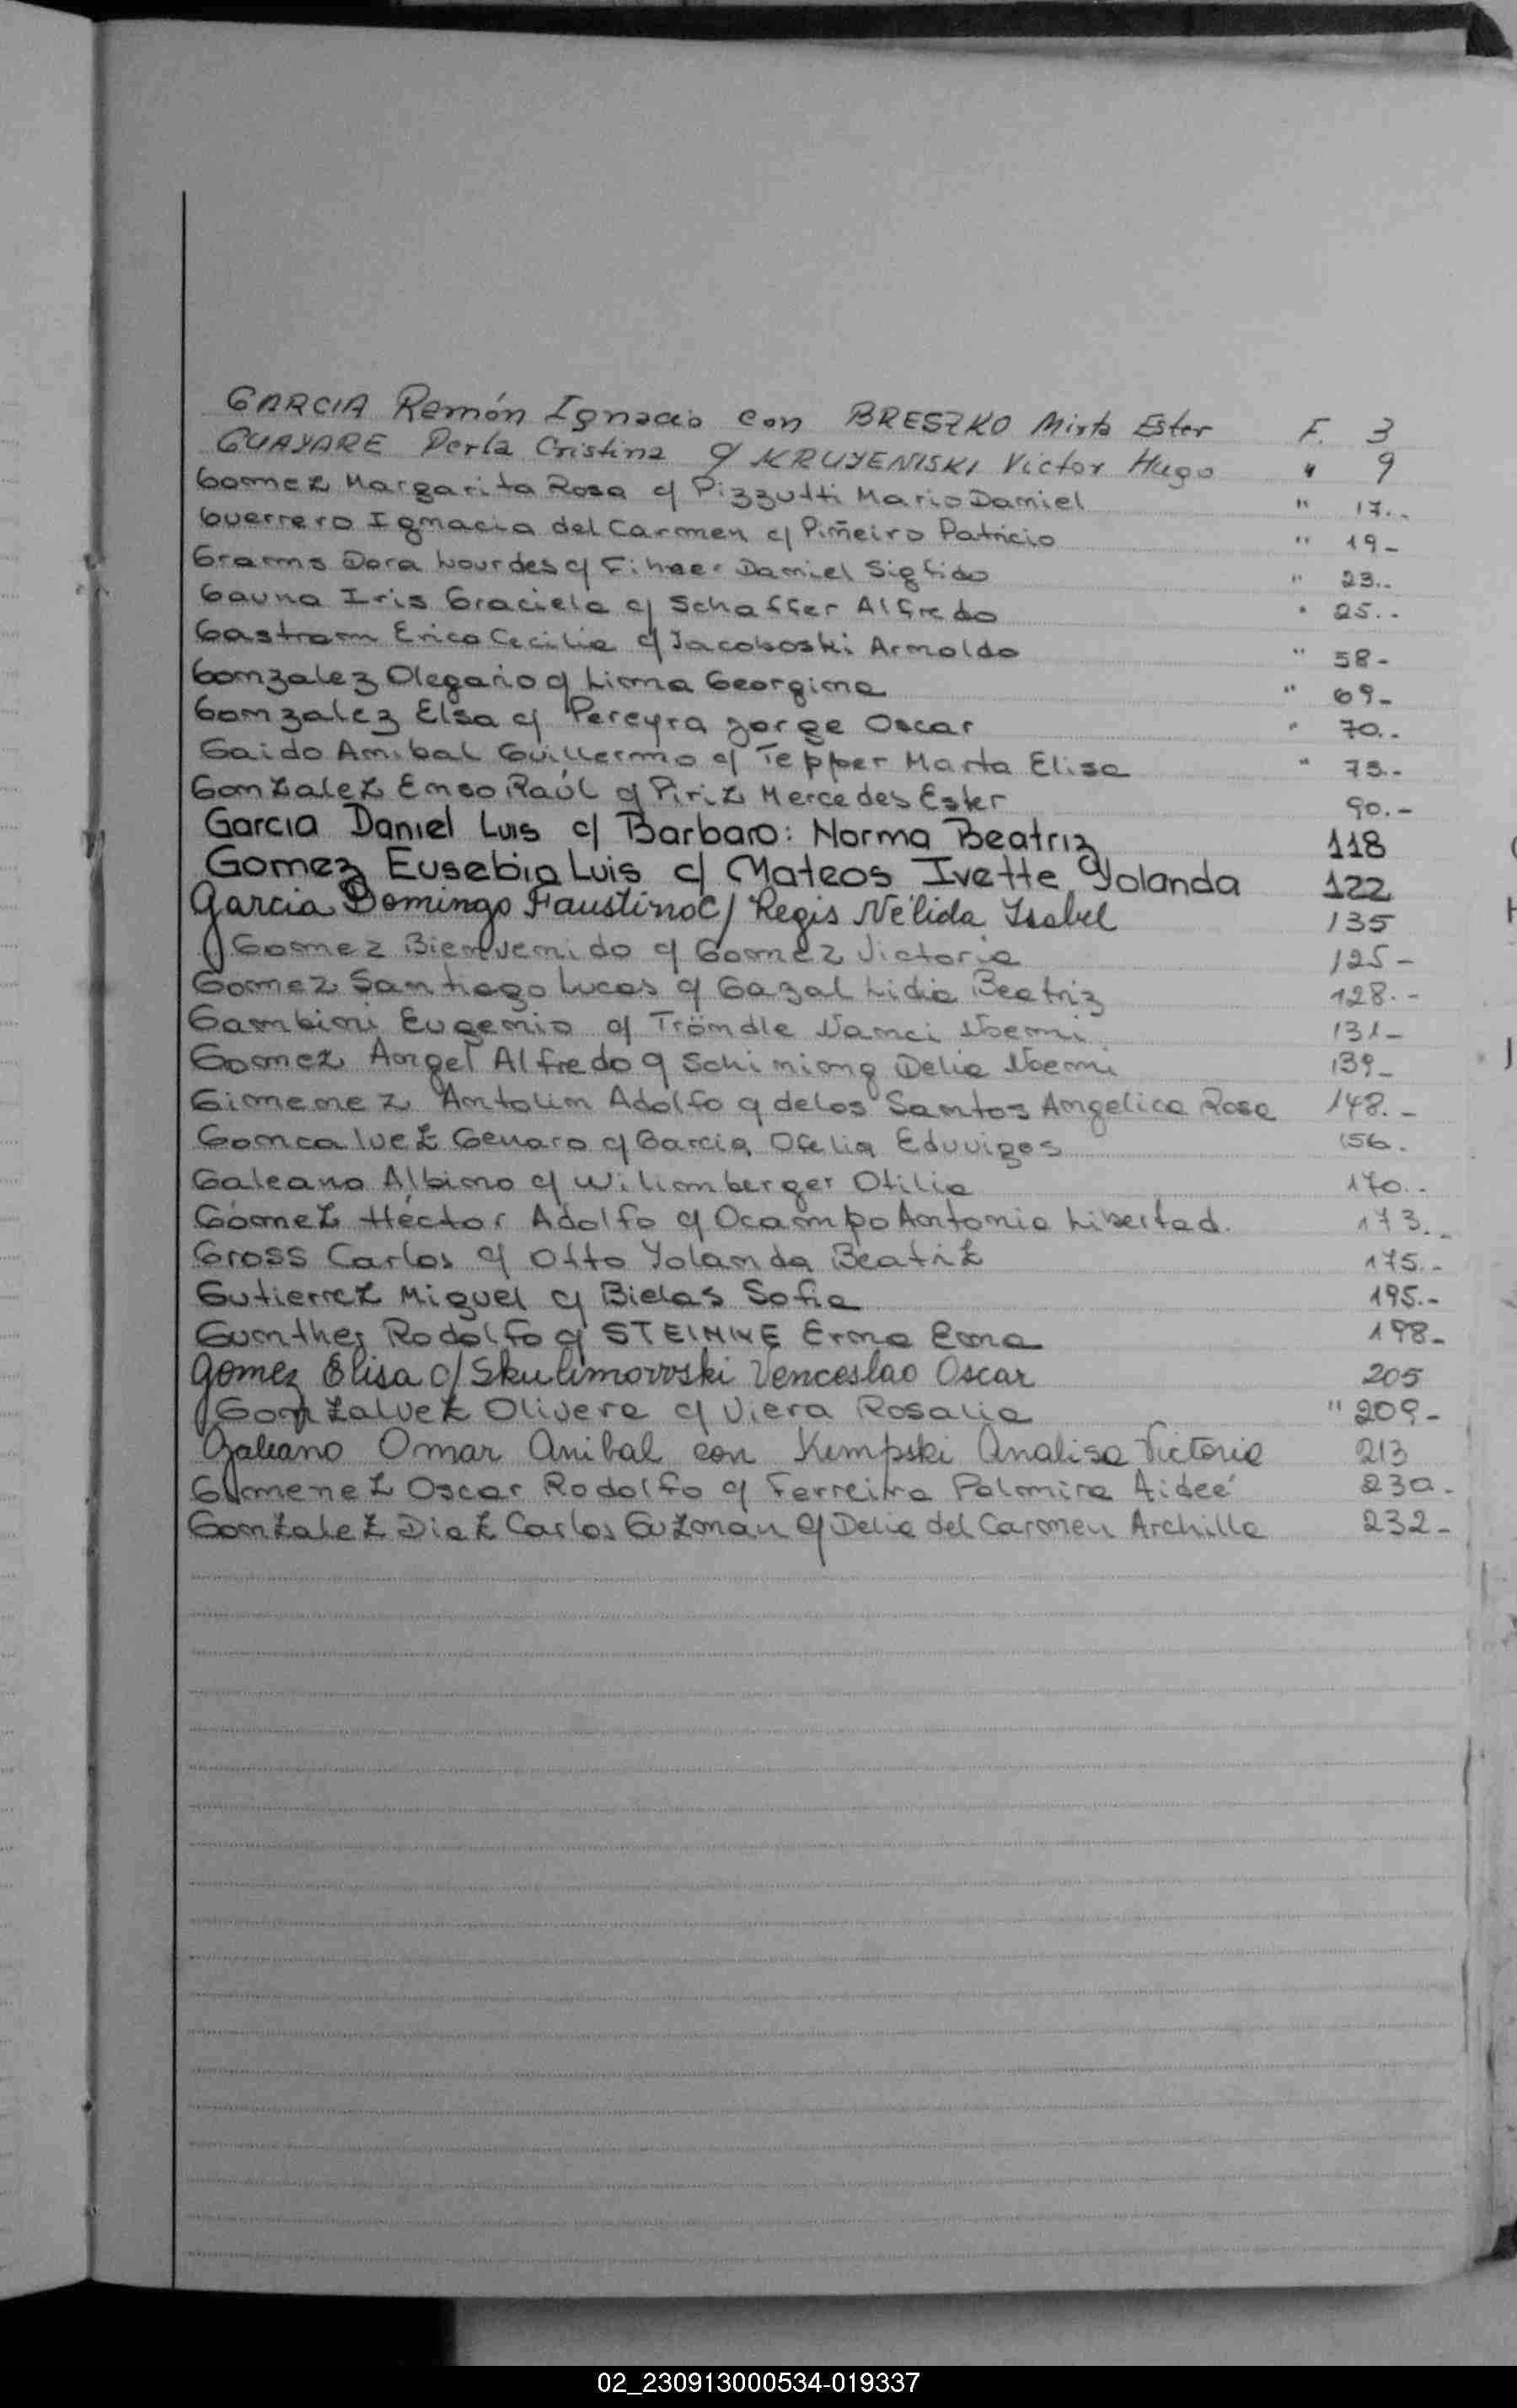 GARCIA Ramón Ignacio con BRESZKO Mirta Ester F. 3
GUAYARE Perla Cristina c/ KRUYENISKI Victor Hugo " 9
Gomez Margarita Rosa c/ Pizzutti Mario Daniel " 17..
Guerrero Ignacia del Carmen c/ Piñeiro Patricio " 19-
Grams Dora Lourdes c/ Daniel Sigfido " 23..
Gauna Iris Graciela c/ Schaffer Alfredo " 25..
Gastram Erica Cecilia c/ Jacoboski Arnoldo " 58-
Gonzalez Olegario c/ Lima Georgina " 69-
Gonzalez Elsa c/ Pereyra Jorge Oscar " 70..
Gaido Anibal Guillermo c/ Tepper Marta Elisa " 75.-
Gonzalez Enso Raúl c/ Piriz Mercedes Ester 90.-
Garcia Daniel Luis c/ Barbaro: Norma Beatriz 118
Gomez Eusebio Luis c/ Mateos Ivette Yolanda 122
Garcia Domingo Faustino c/ Regis Nélida Isabel 135
Gomez Bienvenido c/ Gomez Victoria 125-
Gomez Santiago Lucas c/ Gazal Lidia Beatriz 128.-
Gambini Eugenio c/ Tröndle Nanci Noemi 131-
Gomez Angel Alfredo c/ Schiniong Delia Noemi 139-
Gimenez Antolin Adolfo c/ de los Santos Angelica Rosa 148.-
Goncalvez Genaro c/ Garcia Ofelia Eduviges 156.
Galeano Albino c/ Wilimberger Otilia 170..
Gómez Héctor Adolfo c/ Ocampo Antonia Libertad. 173..
Gross Carlos c/ Otto Yolanda Beatriz 175.-
Gutierrez Miguel c/ Bielas Sofia 195.-
Gunther Rodolfo c/ STEINKE Erma Ema 198-
Gomez Elisa c/ Skulimovski Venceslao Oscar 205
Gonzalvez Olivera c/ Viera Rosalia " 209-
Galeano Omar Anibal con Kempski Analisa Victoria 213
Gimenez Oscar Rodolfo c/ Ferreira Palmira Aideé 230.
Gonzalez Diaz Carlos Guzman c/ Delia del Carmen Archilla 232-
02_230913000534-019337